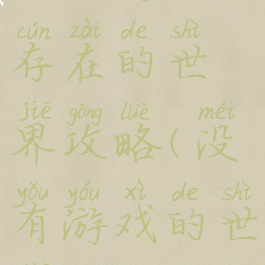 cún zài de shì
存在的世
jiè gōng lüè méi
界攻略(没
yǒu yóu xì de shì
有游戏的世